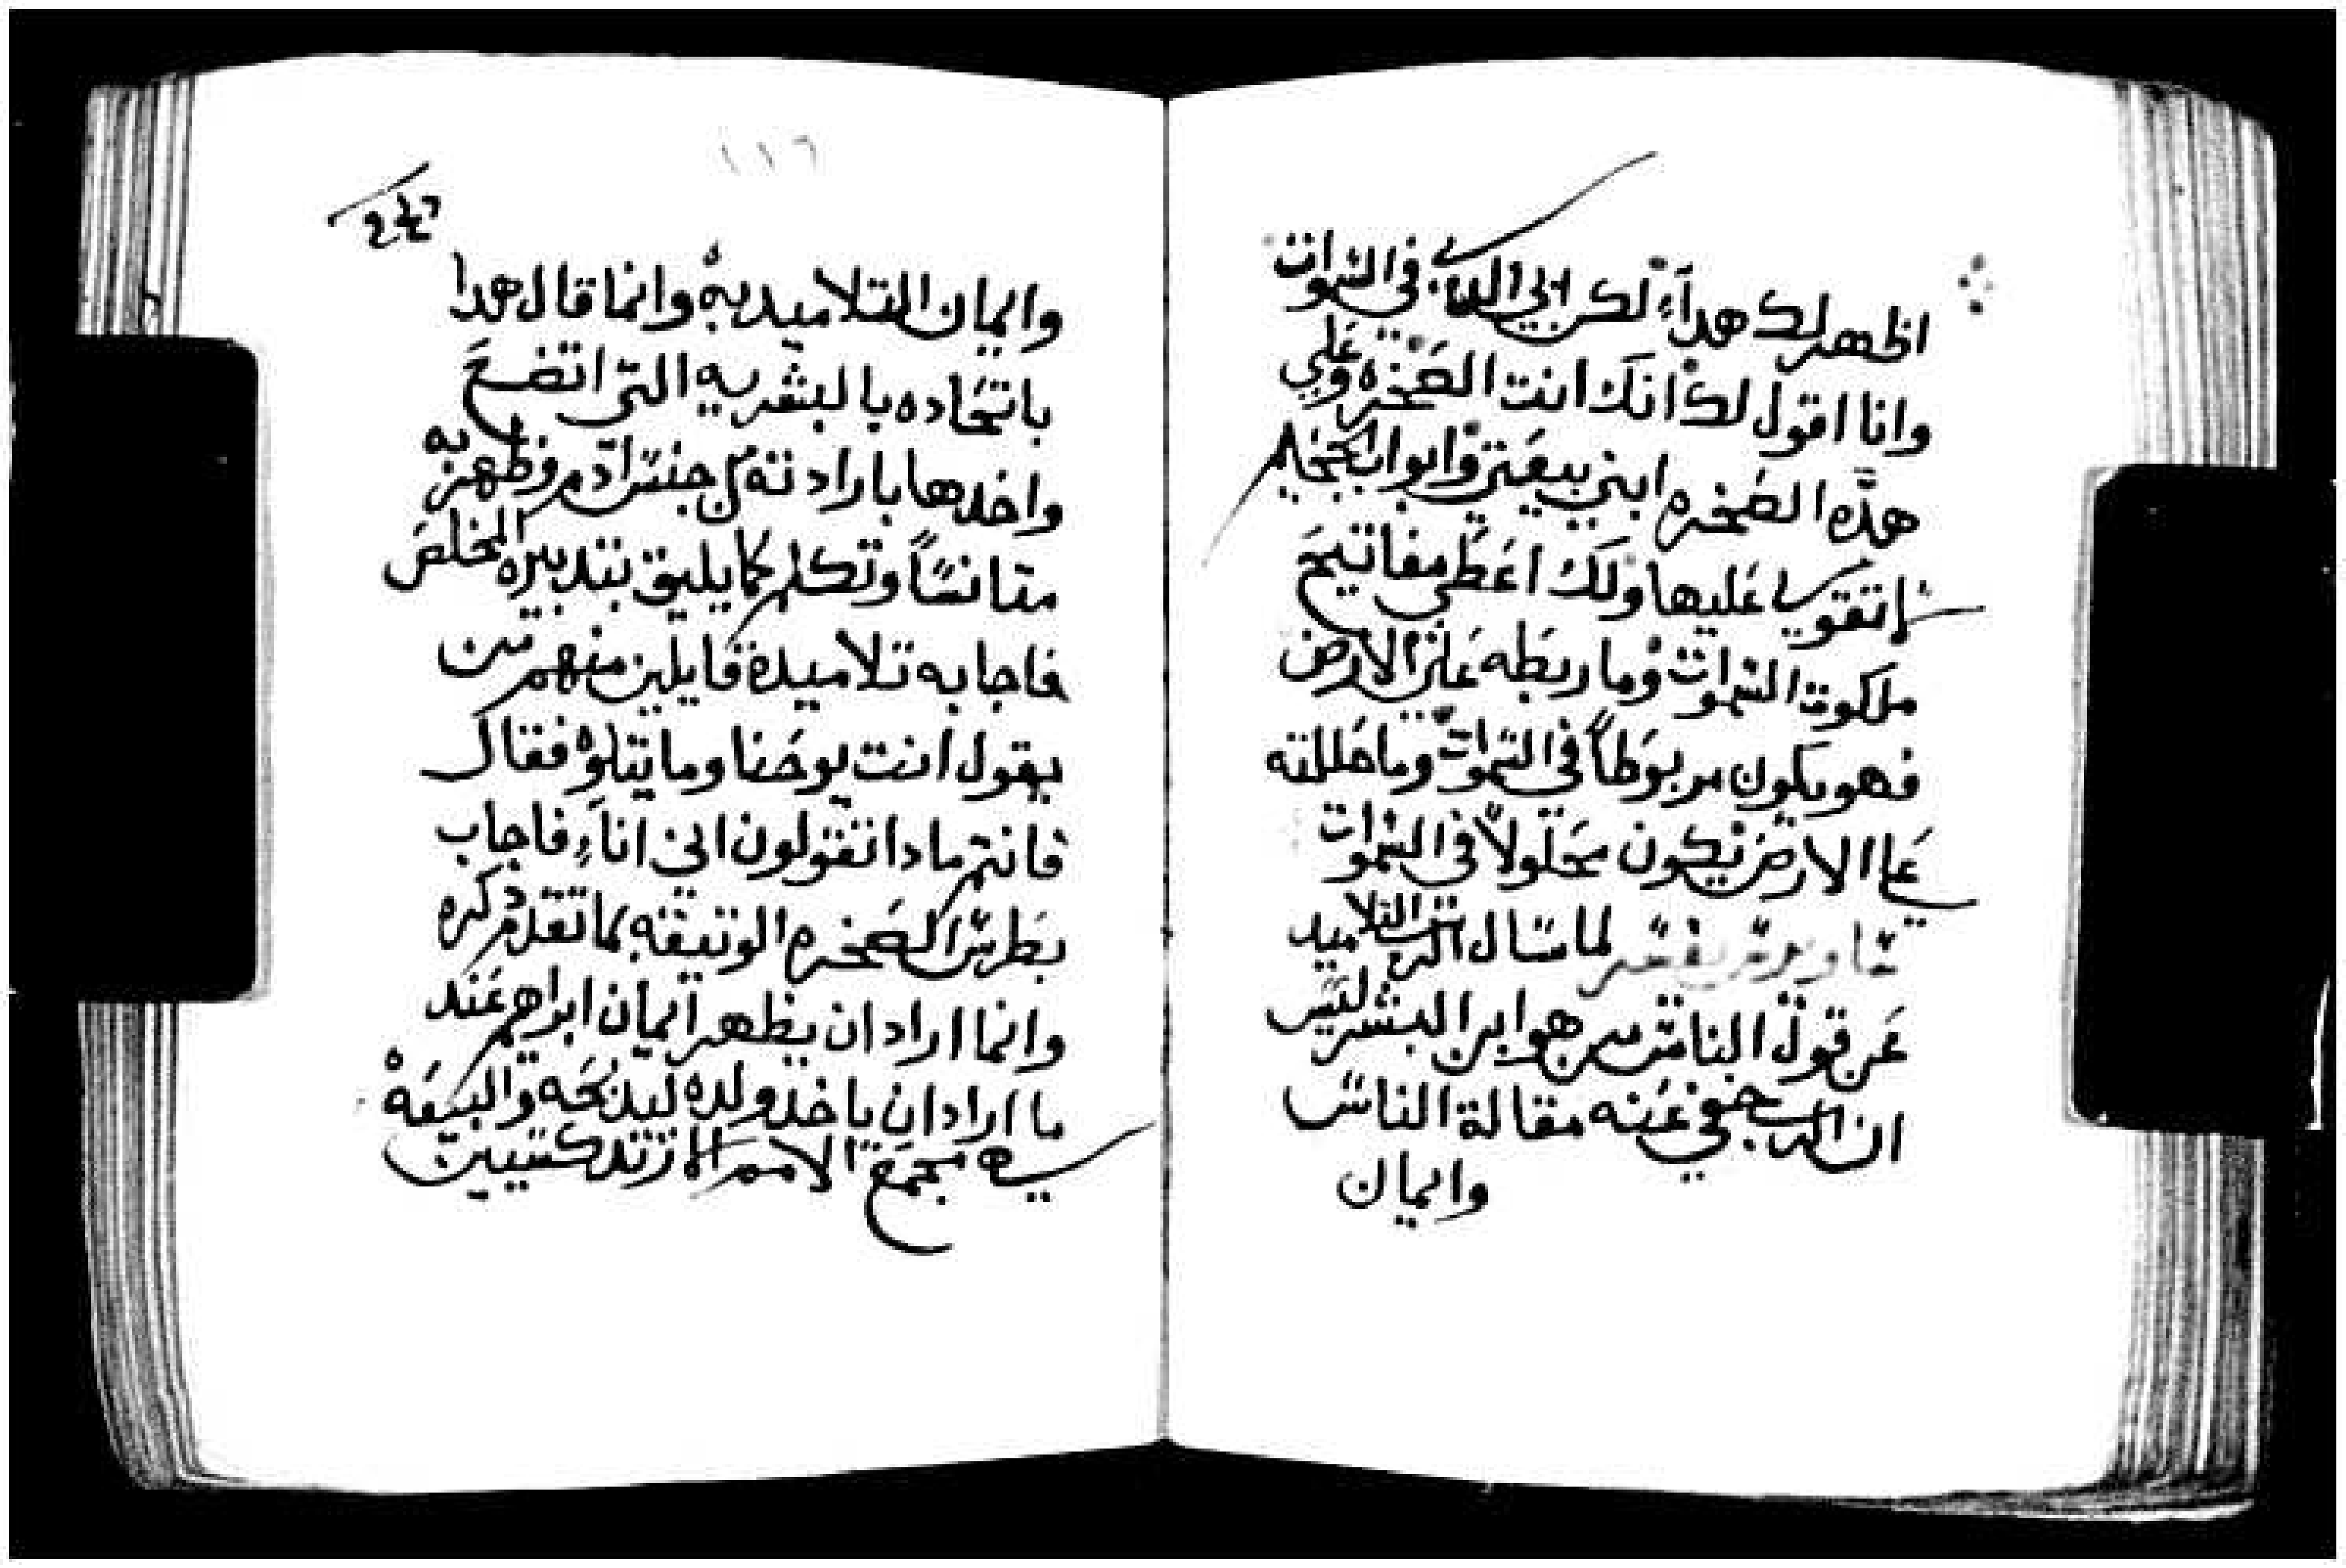 اظهر لك هدا لكن ابي الدي في السموات
وانا اقول لك انك انت الصخره وعلي
هده الصخره ابني بيعتي وابواب الجحيم
لا تقوي عليها ولك اعطي مفاتيح
ملكوت السموات وما ربطه علي الارض
فهو يكون مربوطا في السموات وما حللته
علي الارض يكون محلولا في السموات
تفسير لما سال الرب التلاميد
عن قول الناس من هو ابن البشر ليس
ان الرب خفي عنه مقالة الناس
وايمان
١١٦
وايمان التلاميد به وانما قال هدا
باتحاده بالبشريه التي اتضع
واخدها بارادته من جنس ادم وظهر به
متانسا وتكلم كما يليق بتدبيره المخلص
فاجابه تلاميده قايلين منهم من
يقول انت يوحنا وما يتلوه فقال
فانتم مادا تقولون اني انا فاجاب
بطرس الصخره الوتيقه كما تقدم دكره
وانما اراد ان يظهر ايمان ابراهيم عند
ما اراد ان ياخد ولده ليدبحه والبيعه
هي مجمع الامم الارتدكسيين